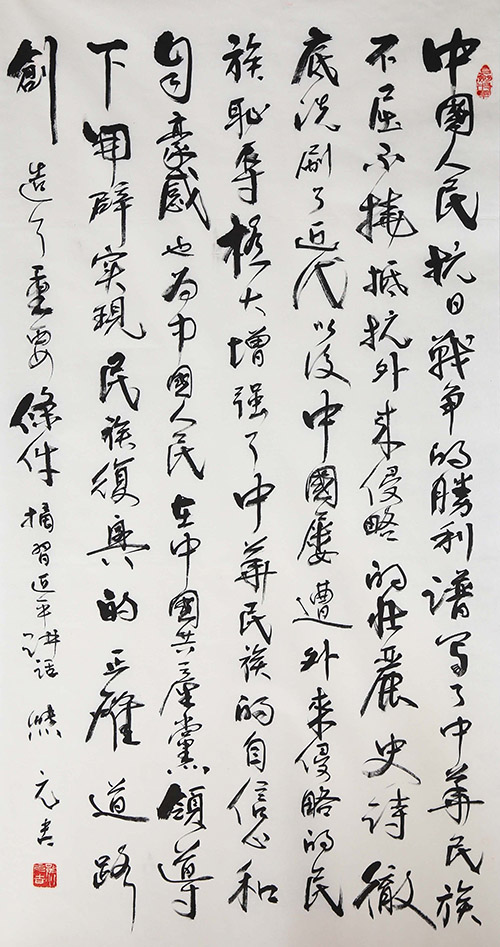 中國人民抗日戰争的勝利譜写了中華民族
不屈不撓抵抗外来侵略的壮麗史詩徹
底洗刷了近代以後中國屢遭外来侵略的民
族耻辱極大增强了中華民族的自信心和
自豪感也为中國人民在中國共產黨領導
下開辟实現民族復興的正確道路
創造了重要條件 摘習近平讲話 熊元